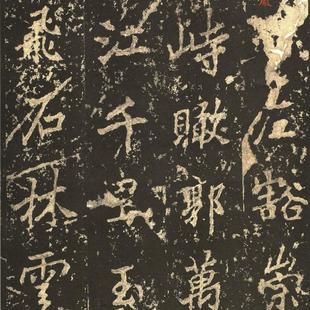 江豁崇
峙瞰郭萬
江千里玉
飛石林雲